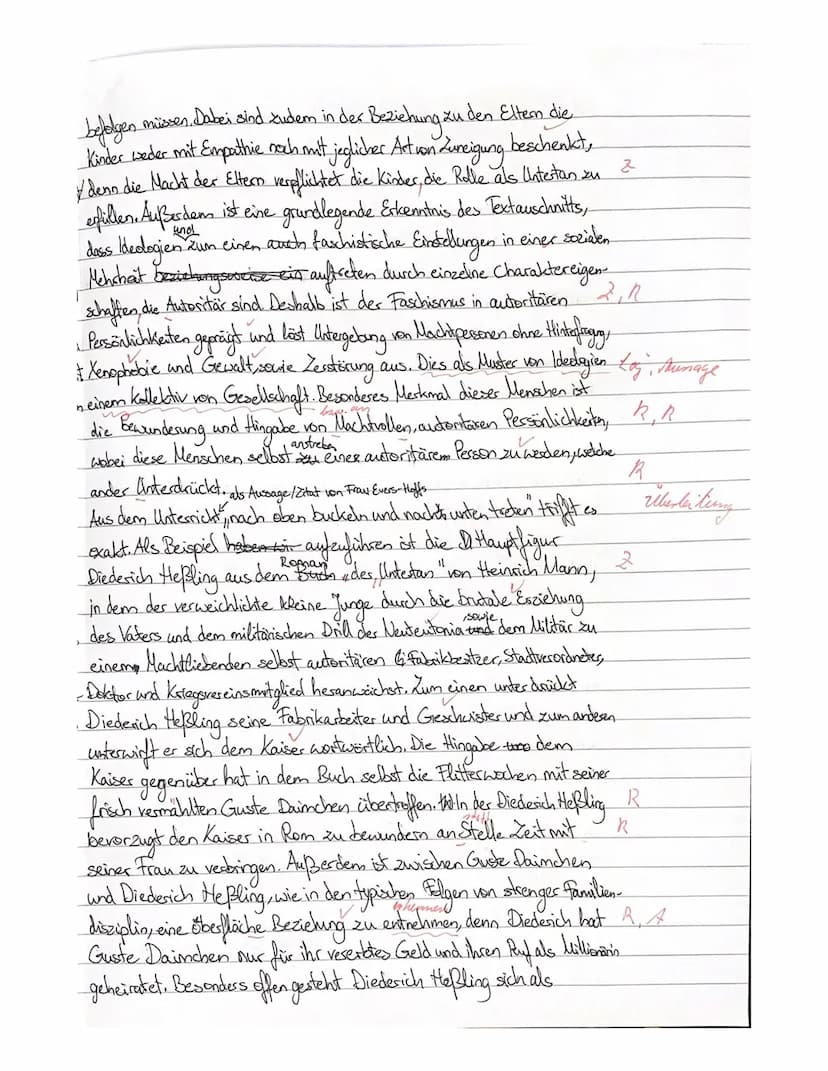 befolgen müssen. Dabei sind zudem in der Beziehung zu den Eltern die
Kinder weder mit Empathie noch mit jeglicher Art von Zuneigung beschenkt,
denn die Macht der Eltern verpflichtet die Kinder, die Rolle als Untertan zu Z
erfüllen. Außerdem ist eine grundlegende Erkenntnis des Textauschnitts,
und
dass Ideologien zum einen auch faschistische Einstellungen in einer sozialen
Mehrheit beziehungsweise ein auftreten durch einzelne Charaktereigen-
schaften, die Autoritär sind. Deshalb ist der Faschismus in autoritären Z, R
Persönlichkeiten geprägt und löst Untergebung von Machtpersonen ohne Hinterfragung,
Xenophobie und Gewalt, sowie Zerstörung aus. Dies als Muster von Ideologien Log, Aussage
einem Kollektiv von Gesellschaft. Besonderes Merkmal dieser Menschen ist
die Bewunderung und Hingabe von Machtvollen, autoritären Persönlichkeiten, R, R
anstreben
wobei diese Menschen selbst zu einer autoritärem Person zu werden, welche
R
ander Unterdrückt. als Aussage/Zitat von Frau Evers-Hoffs
Überleitung
Aus dem Unterricht „nach oben buckeln und nach unten treten" trifft es
exakt. Als Beispiel haben wir aufzuführen ist die Hauptfigur
Roman
Diederich Heßling aus dem Buch „des Untertan" von Heinrich Mann, Z
in dem der verweichlichte kleine Junge durch die brutale Erziehung
sowie
des Vaters und dem militärischen Drill der Neuteutonia und dem Militär zu
einem Machtliebenden selbst autoritären Fabrikbesitzer, Stadtverordneter,
Doktor und Kriegsvereinsmitglied heranwächst. Zum einen unterdrückt
Diederich Heßling seine Fabrikarbeiter und Geschwister und zum anderen
unterwirft er sich dem Kaiser wortwörtlich. Die Hingabe dem
Kaiser gegenüber hat in dem Buch selbst die Flitterwochen mit seiner
frisch vermählten Guste Daimchen übertroffen. In der Diederich Heßling R
bevorzugt den Kaiser in Rom zu bewundern an Stelle Zeit mit R
seiner Frau zu verbringen. Außerdem ist zwischen Guste Daimchen
und Diederich Heßling, wie in den typischen Folgen von strenger Familien-
disziplin, eine Oberfläche Beziehung zu entnehmen, denn Diederich hat R, A
Guste Daimchen nur für ihr vererbtes Geld und ihren Ruf als Millionärin
geheiratet. Besonders offen gesteht Diederich Heßling sich als